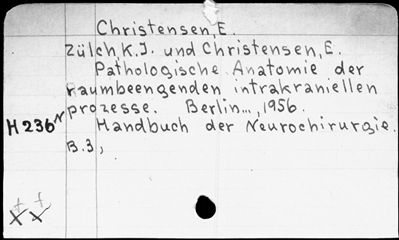 Christensen, E.
Zülch, K.J. und Christensen, E.
Pathologische Anatomie der
raumbeengenden intrakraniellen
prozesse. Berlin..., 1956.
H 236 N
Handbuch der Neurochirurgie.
B.3,